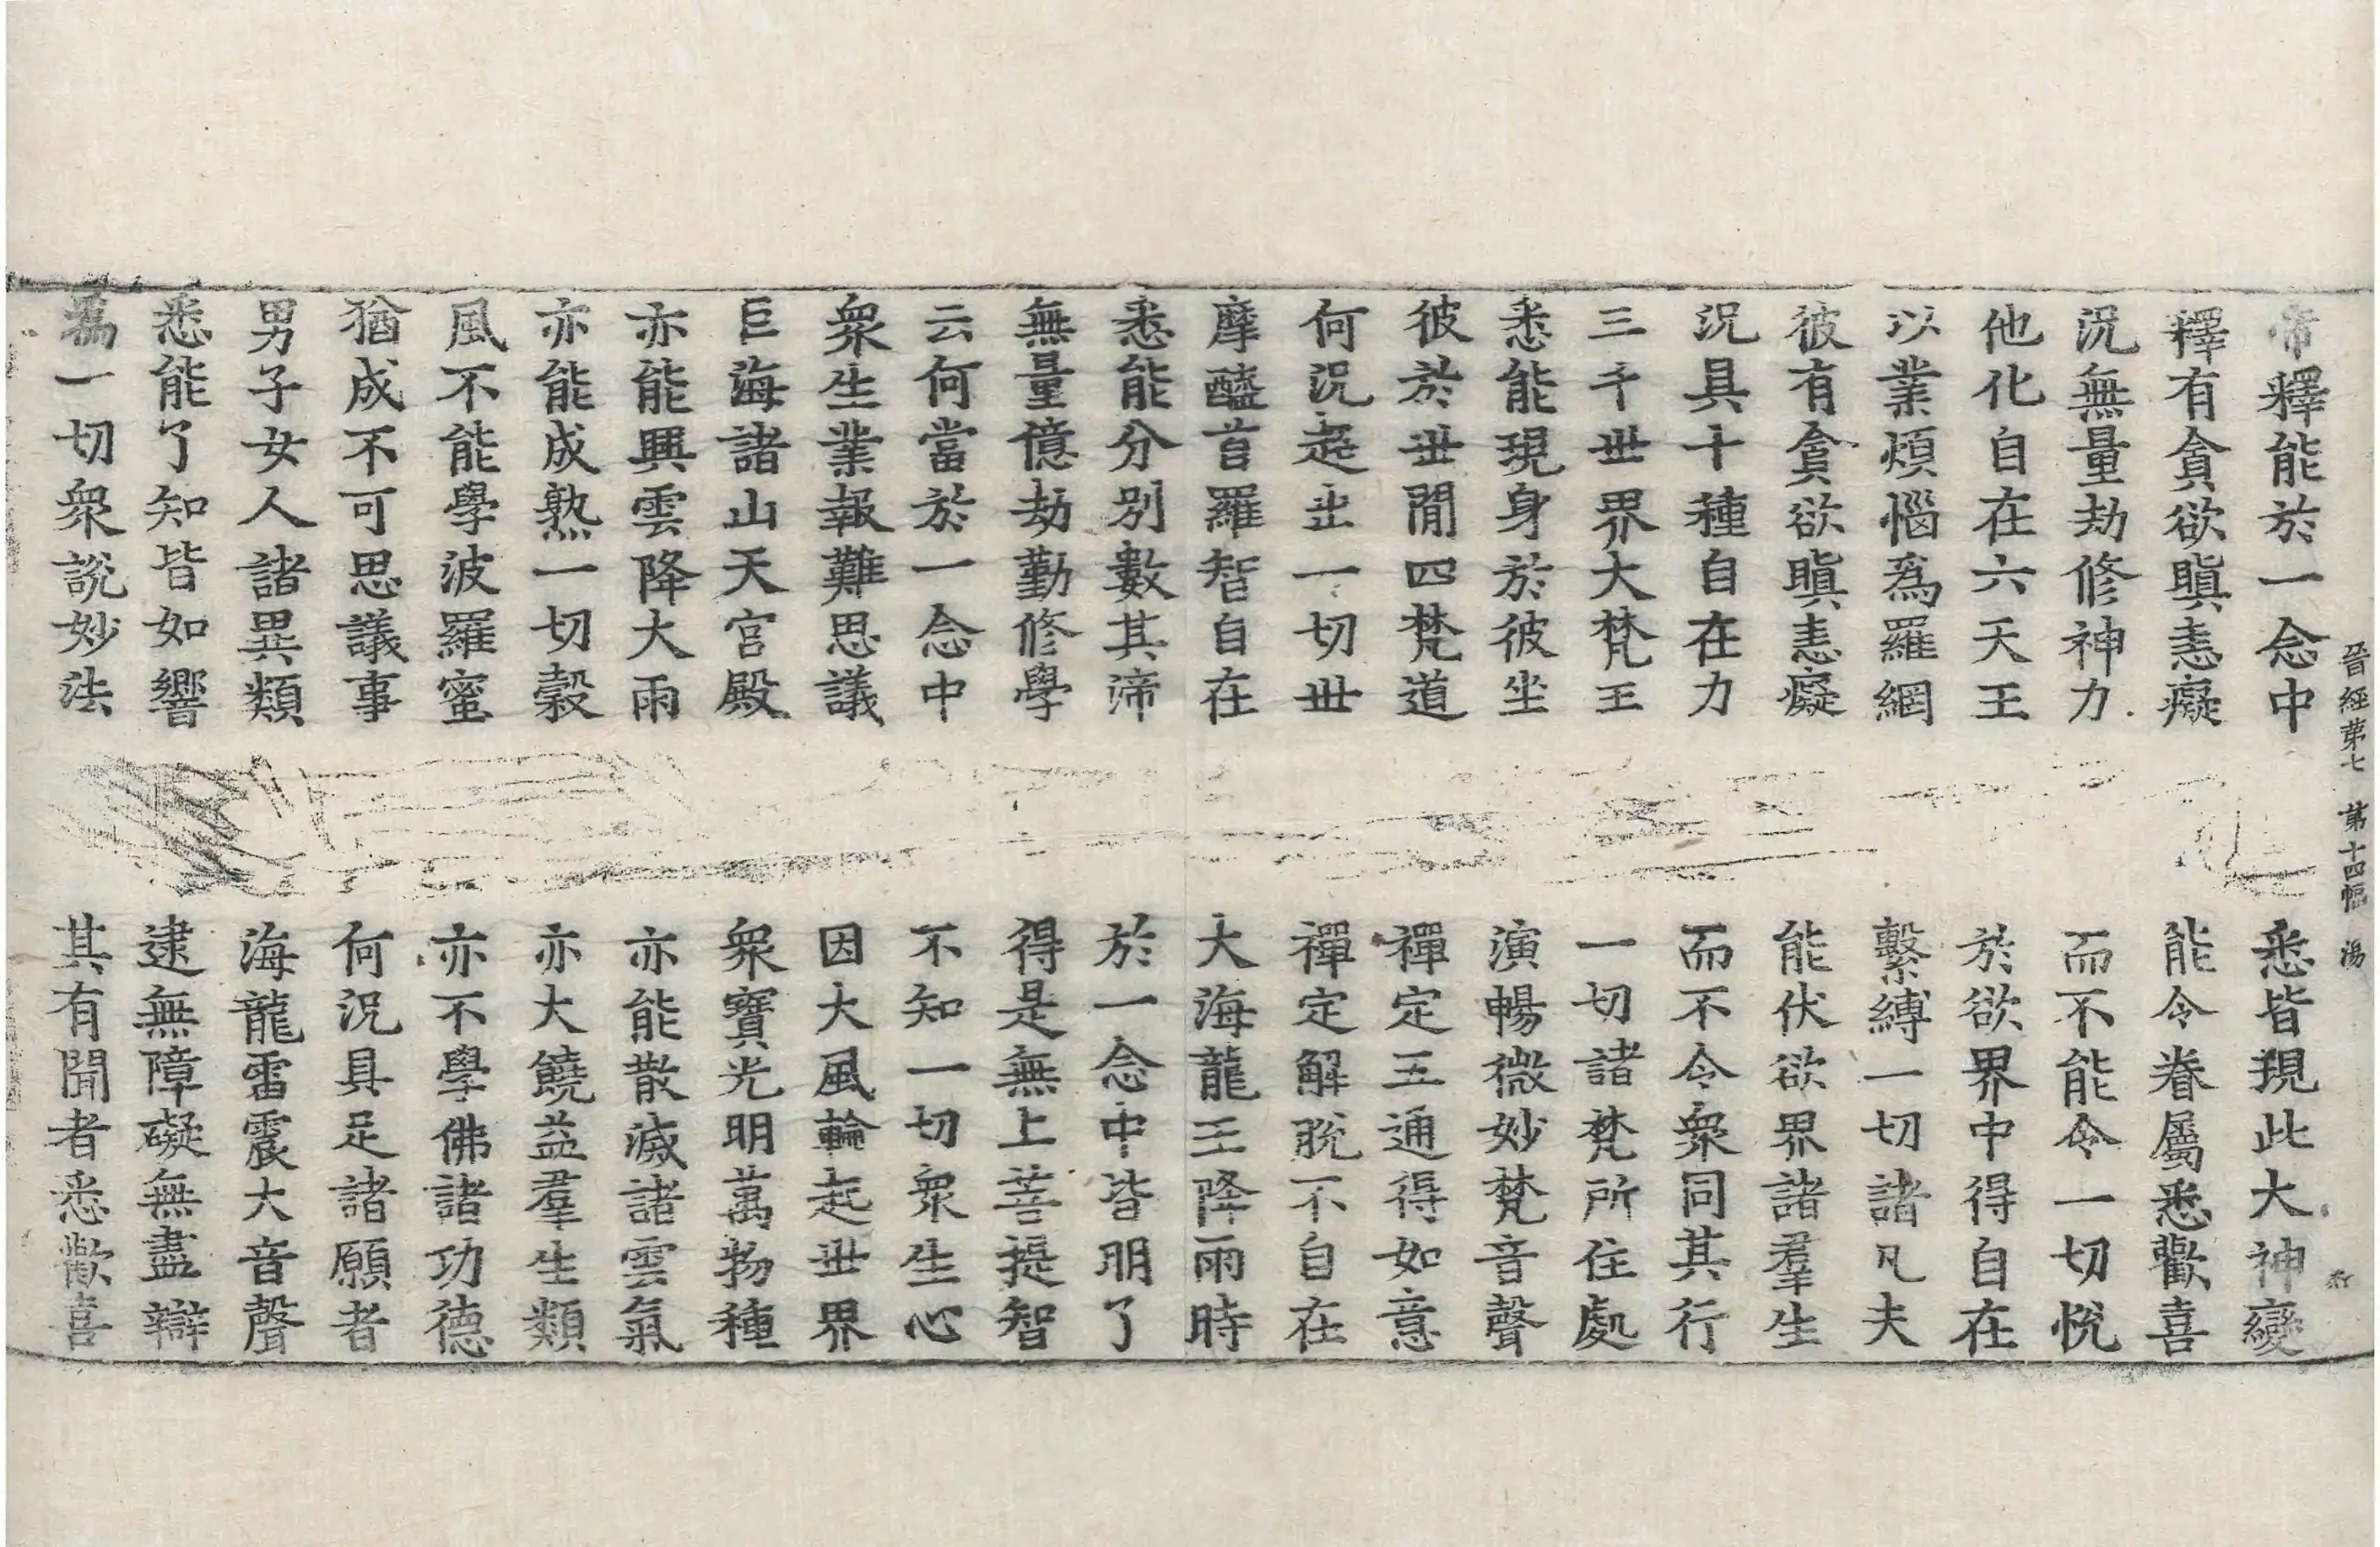 晉經第七 第十四幅 湯
帝釋能於一念中 悉皆現此大神變
釋有貪欲瞋恚癡 能令眷屬悉歡喜
況無量劫修神力 而不能令一切悅
他化自在六天王 於欲界中得自在
以業煩惱爲羅網 繫縛一切諸凡夫
彼有貪欲瞋恚癡 能伏欲界諸羣生
況具十種自在力 而不令衆同其行
三千世界大梵王 一切諸梵所住處
悉能現身於彼坐 演暢微妙梵音聲
彼於世閒四梵道 禪定五通得如意
何況超出一切世 禪定解脫不自在
摩醯首羅智自在 大海龍王降雨時
悉能分別數其渧 於一念中皆明了
無量億劫勤修學 得是無上菩提智
云何當於一念中 不知一切衆生心
衆生業報難思議 因大風輪起世界
巨海諸山天宮殿 衆寶光明萬物種
亦能興雲降大雨 亦能散滅諸雲氣
亦能成熟一切穀 亦大饒益羣生類
風不能學波羅蜜 亦不學佛諸功德
猶成不可思議事 何況具足諸願者
男子女人諸異類 海龍雷震大音聲
悉能了知皆如響 逮無障礙無盡辯
爲一切衆說妙法 其有聞者悉歡喜